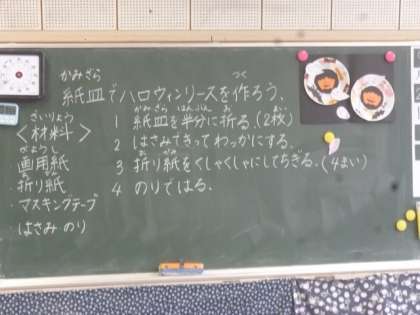 かみざら つく
紙皿でハロウィンリースを作ろう。
ざいりょう
<材料>
がようし
画用紙
・折り紙
・マスキングテープ
はさみ のり
かみざら はんぶん お まい
1 紙皿を半分に折る。(2枚)
2 はさみできってわっかにする。
3 折り紙をくしゃくしゃにしてちぎる。(4まい)
4 のりではる。